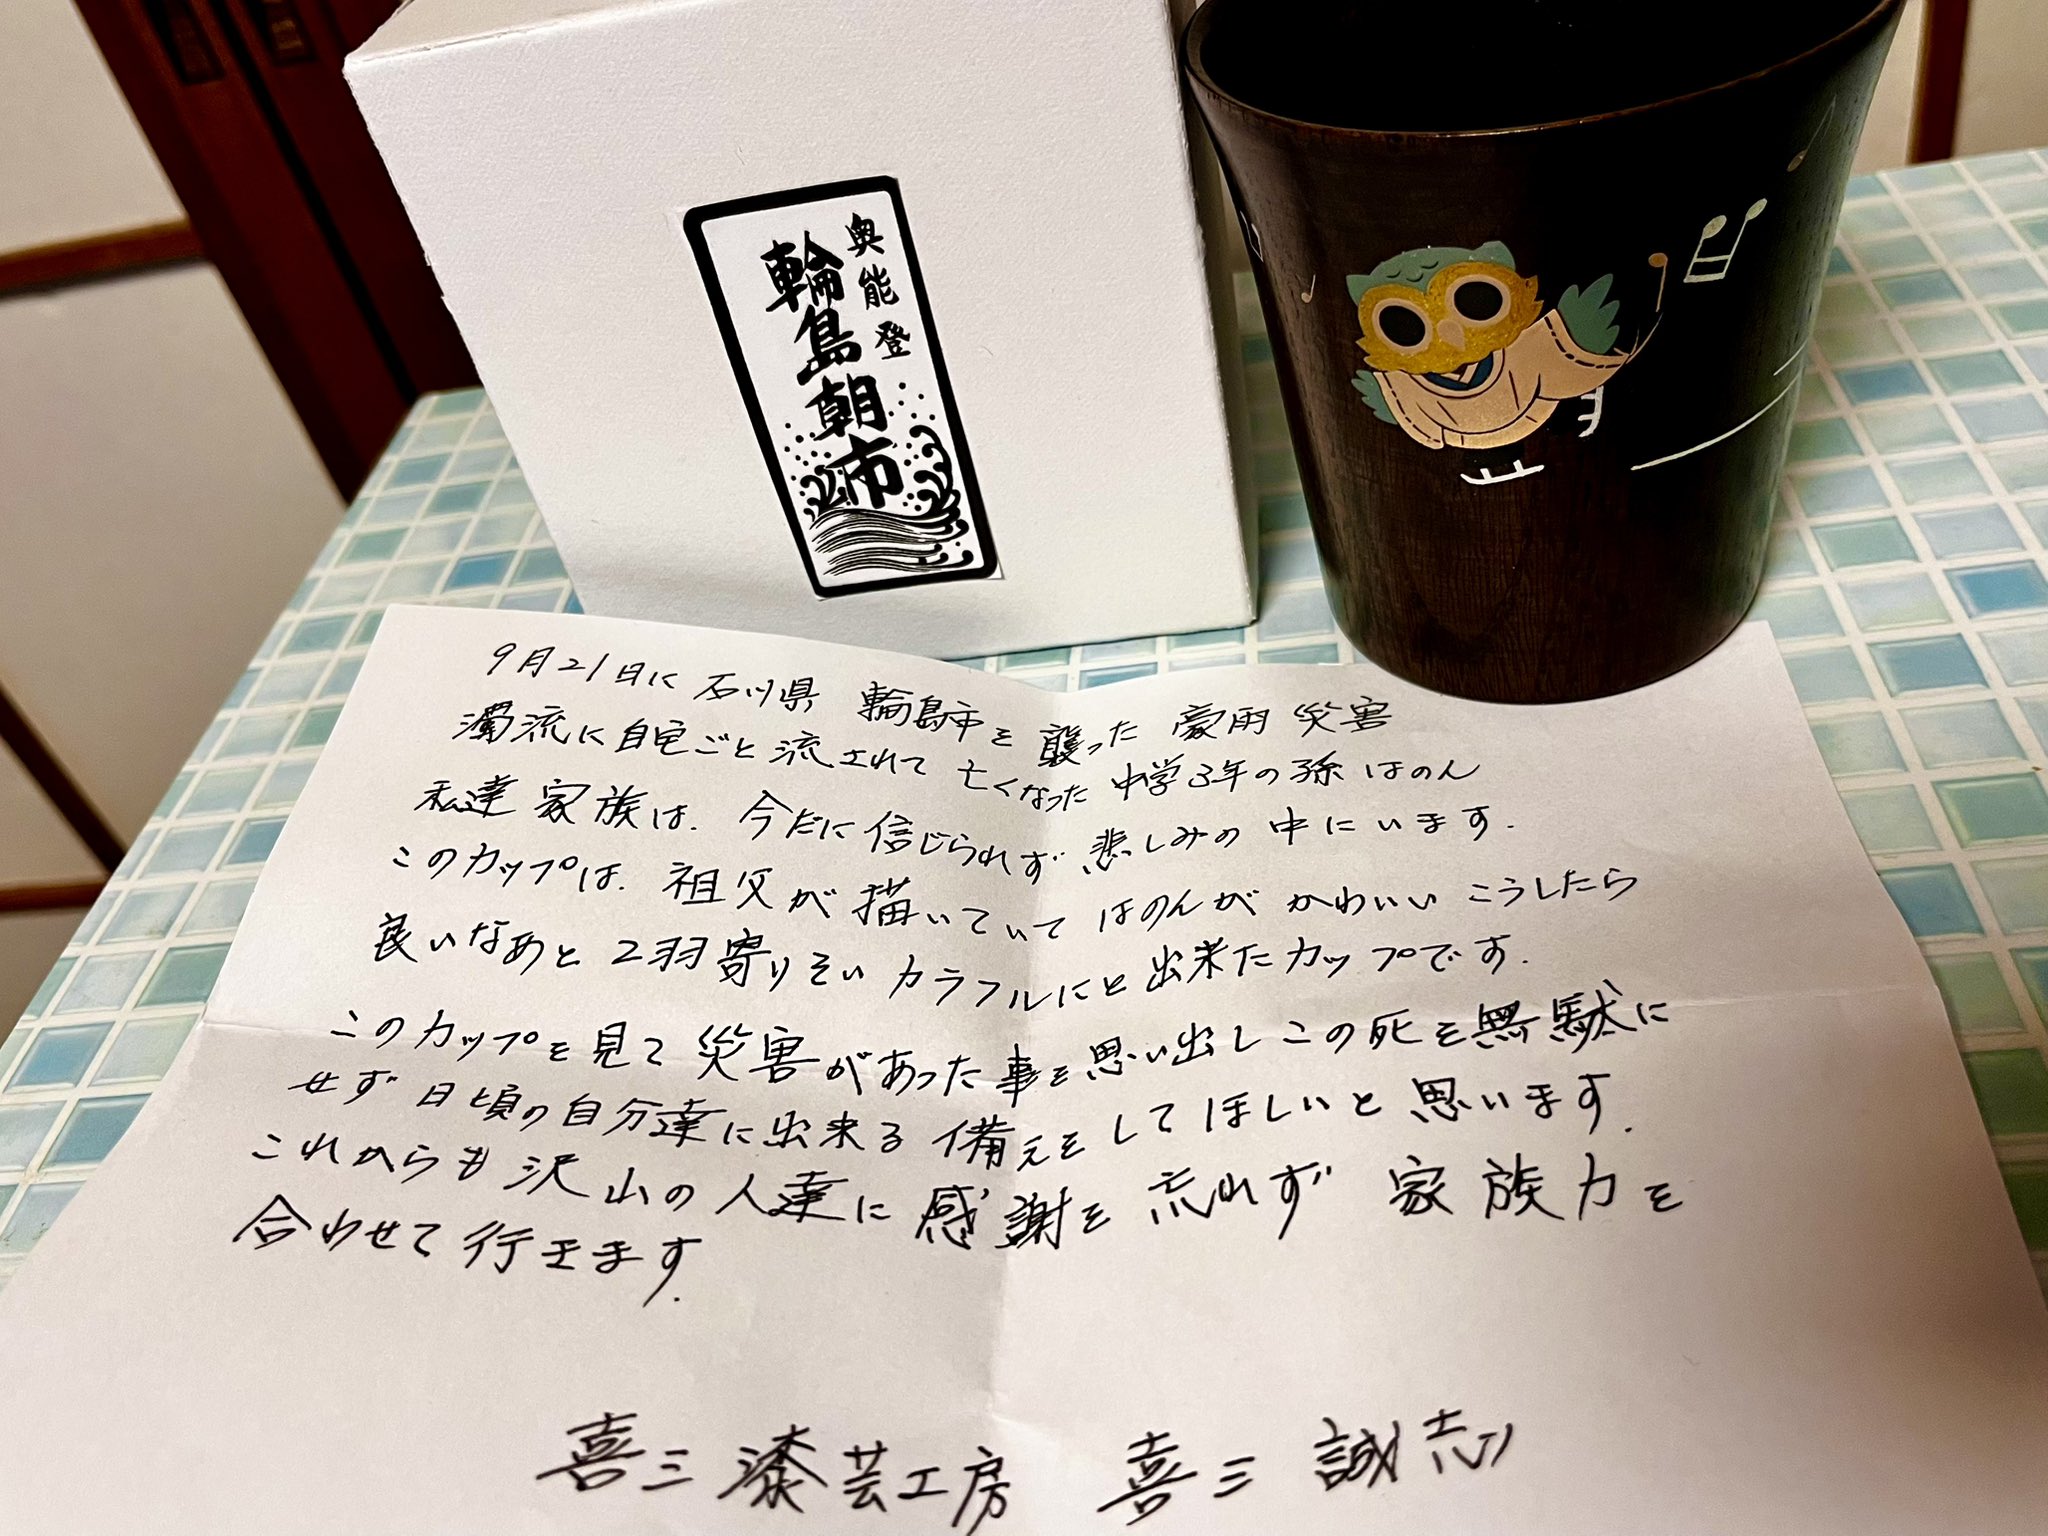 奥能登
輪島朝市
9月21日に 石川県 輪島市を 襲った 豪雨 災害
濁流に自宅ごと流されて 亡くなった 中学3年の孫 はのん
私達 家族は、今だに信じられず 悲しみの 中にいます.
このカップは、祖父が描いていて はのんが かわいい こうしたら
良いなあと 2羽寄りそい カラフルにと出来たカップです.
このカップを見て 災害があった事を思い出し この死を無駄に
せず 日頃の自分達に出来る 備えをしてほしいと 思います.
これからも 沢山の 人達に 感謝を 忘れず 家族力を
合わせて 行きます.
喜三 漆芸工房 喜三 誠志